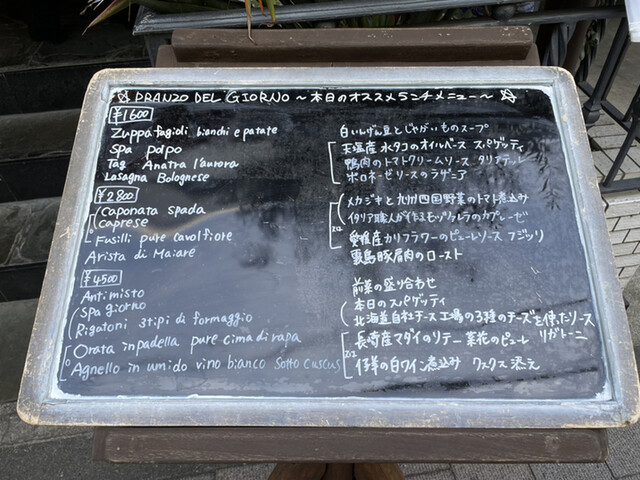 ☆ PRANZO DEL GIORNO ～本日のオススメランチメニュー～ ☆
¥1600
Zuppa fagioli bianchi e patate 白いんげん豆とじゃがいものスープ
Spa polpo 天塩産 水タコのオイルベース スパゲッティ
Tag Anatra l'aurora 鴨肉のトマトクリームソース タリアテッレ
Lasagna Bolognese ボロネーゼソースのラザニア
¥2800
Caponata spada メカジキと九州四国野菜のトマト煮込み
caprese イタリア職人が作るモッツァレラのカプレーゼ
Fusilli pure cavolfiore 愛知産カリフラワーのピューレソース フジッリ
Arista di Maiare 雲島豚肩肉のロースト
¥4500
Antimisto 前菜の盛り合わせ
Spa giorno 本日のスパゲッティ
Rigatoni 3tipi di formaggio 北海道自社チーズ工場の3種のチーズを使ったソース リガトーニ
Orata inpadella pure cima di rapa 長崎産マダイのソテー 菜花のピューレ
Agnello in umido vino bianco sotto cuscus 仔羊の白ワイン煮込み クスクス添え